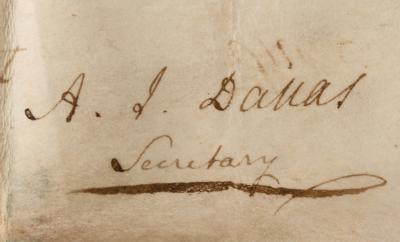 A. J. Dallas
Secretary